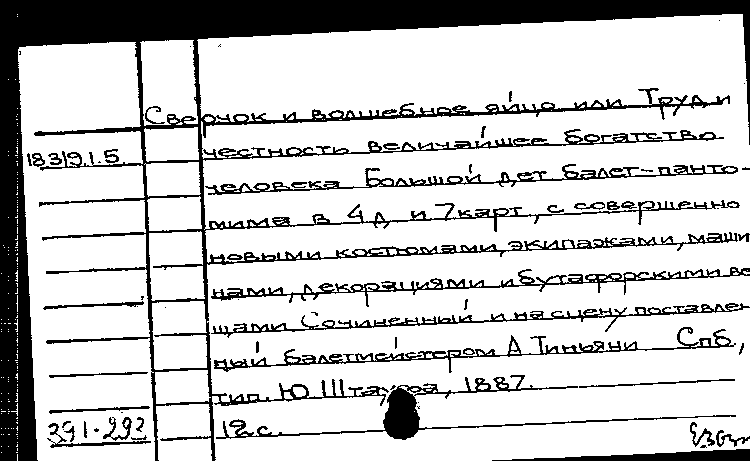 Сверчок и волшебное яйцо или Труд и
18319.1.5 честность величайшее богатство
человека Большой дет балет-панто-
мима в 4 д и 7 карт, с совершенно
новыми костюмами, экипажами, маши
нами, декорациями и бутафорскими ве
щами Сочиненный и на сцену поставлен
ный балетмейстером А Тиньяни Спб,
тип. Ю Штауфа, 1887.
391-292 12 с.